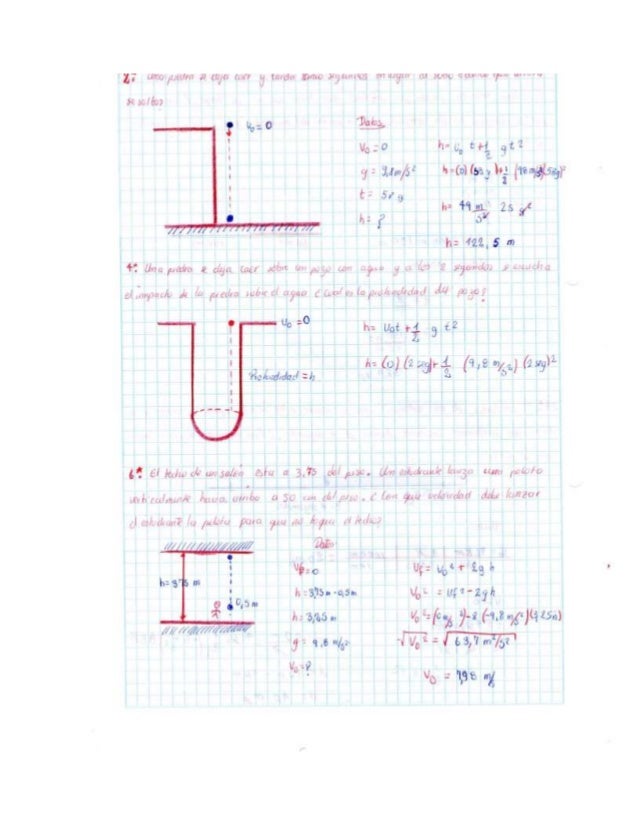 2: Una piedra se deja caer y tarda segundos en llegar al
V₀=0
Datos
V₀=0
g= 9,8 m/s²
t= 5seg
h= ?
h= V₀ t+1/2 gt²
h=(0) (5seg)+1/2 (9,8 m/s²)(5seg)²
h= 49 m/s² 25 s²
h= 122,5 m
4: Una piedra se deja caer sobre un pozo con agua y a los 2 segundos se escucha
el impacto de la piedra sobre el agua ¿Cuál es la profundidad del pozo?
V₀ =0
Profundidad =h
h= V₀t +1/2 g t²
h= (0) (2 seg)+ 1/2 (9,8 m/s²) (2 seg)²
6: El techo de un salón está a 3,75 del piso. Un estudiante lanza una pelota
verticalmente hacia arriba a 50 cm del piso. ¿Con que velocidad debe lanzar
el estudiante la pelota para que no toque el techo?
Datos
h=3,75 m
0,5m
Vf=0
h=3,75m-0,5m
h=3,25m
g= 9,8 m/s²
V₀=?
Vf²= V₀²+ 2g h
V₀² = Vf²-2gh
V₀²=(0 m/s)²-2 (-9,8 m/s²)(3,25m)
√V₀² = √63,7 m²/s²
V₀ = 7,98 m/s